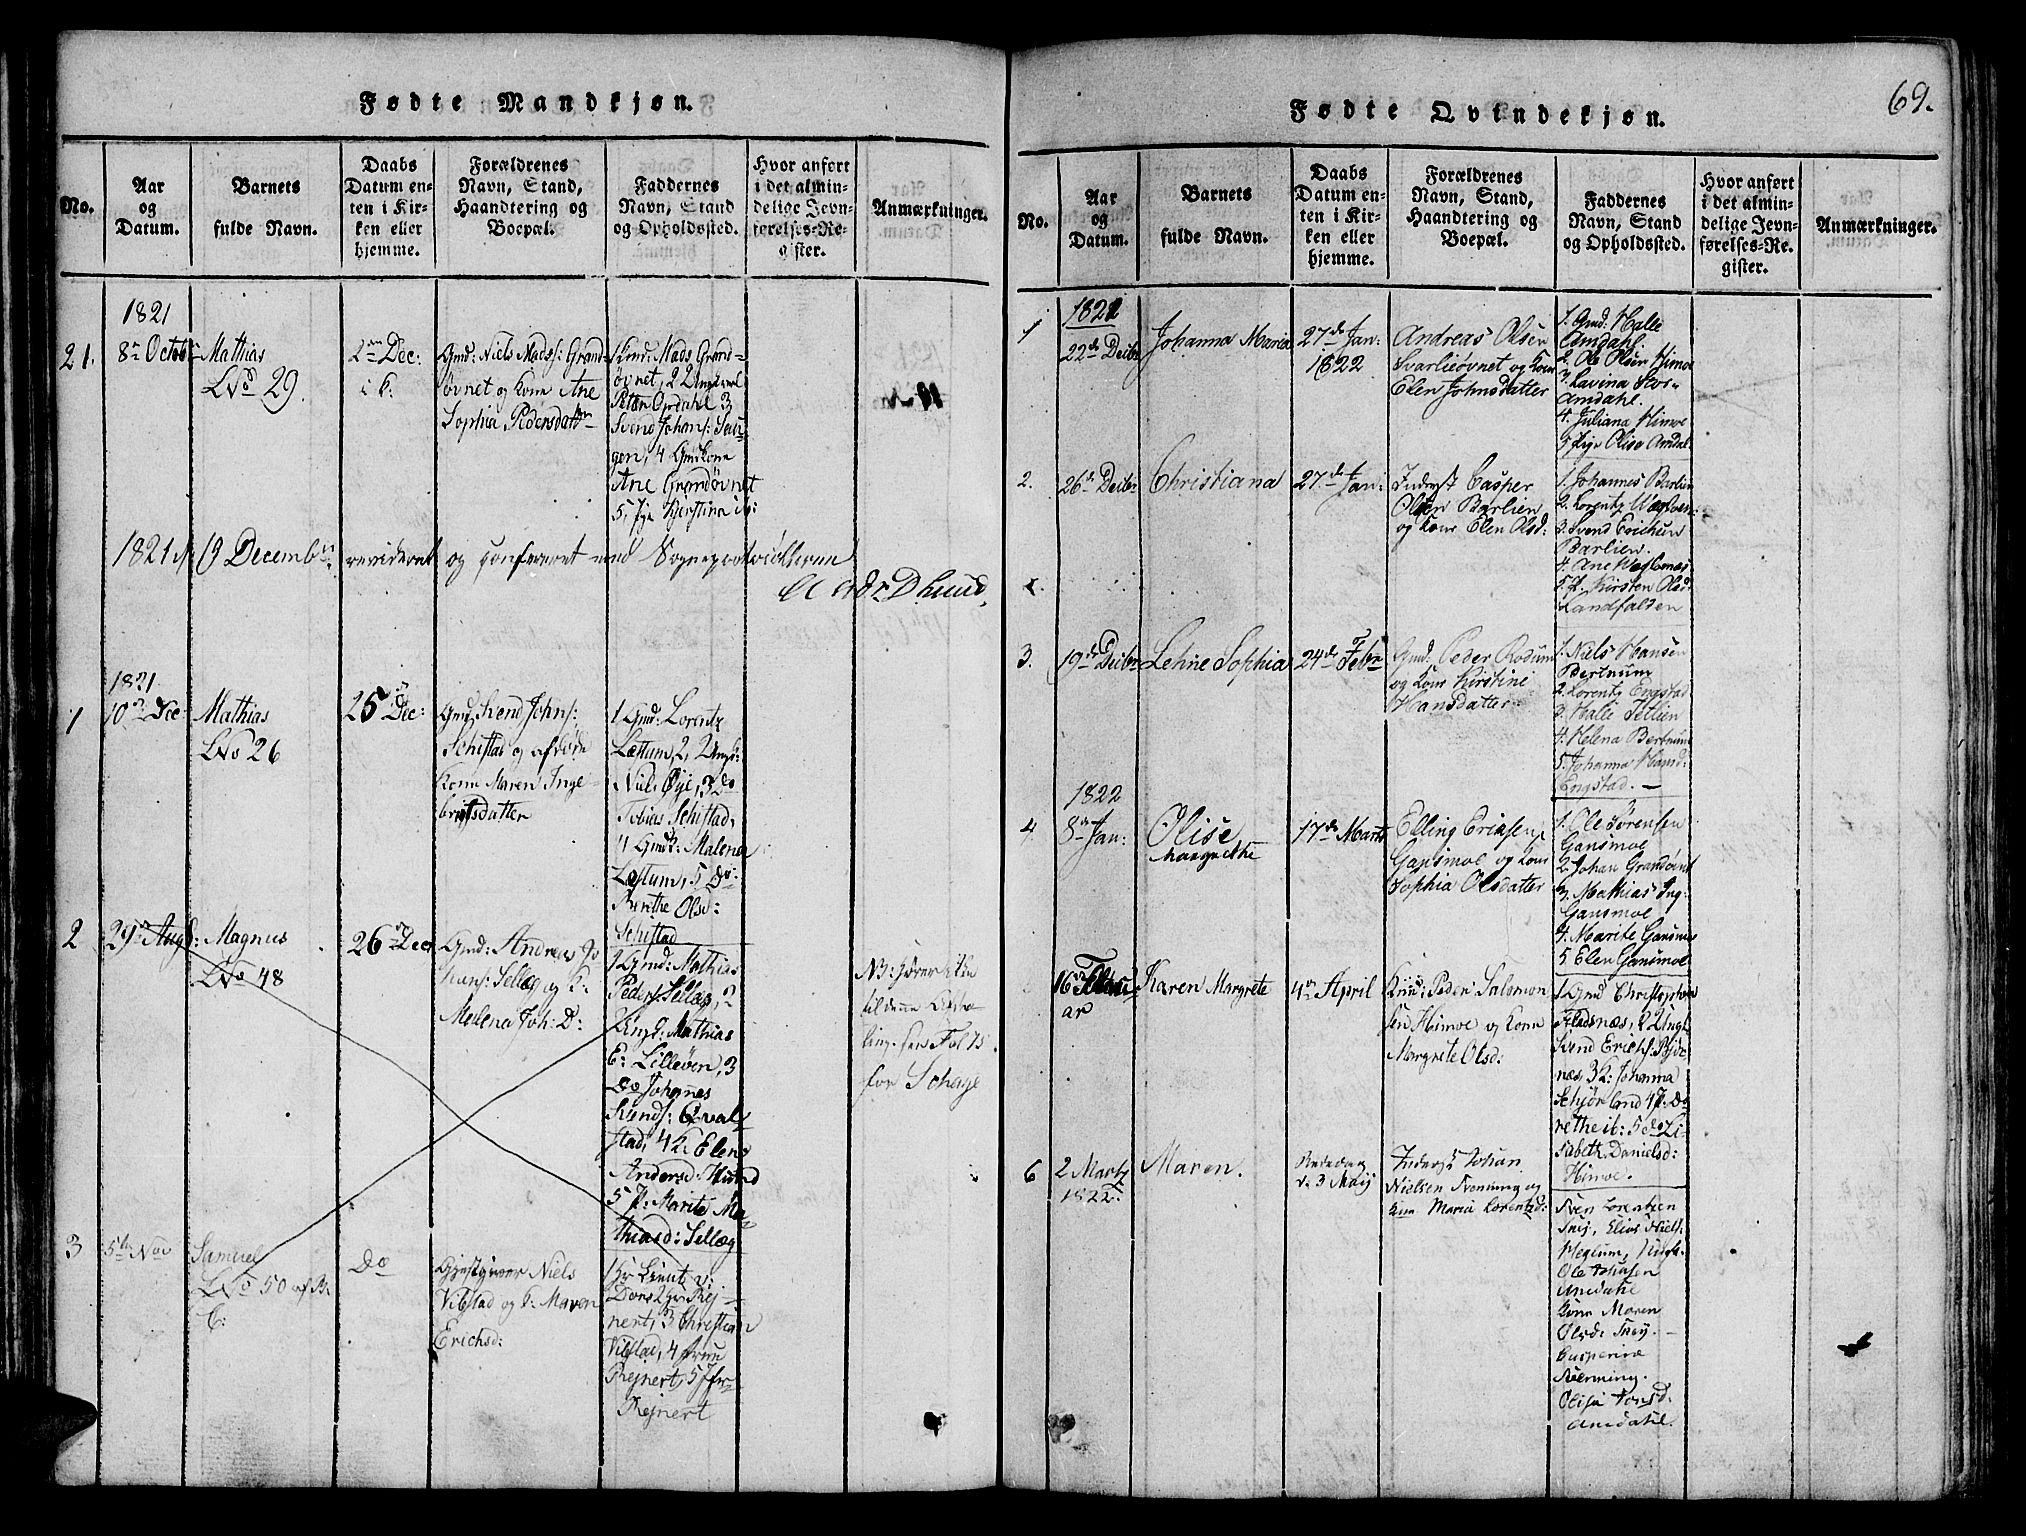 Fødte Mandkjøn.
No.
Aar
og
Datum.
Barnets
fulde Navn.
Daabs
Datum en-
ten i Kir-
ken eller
hjemme.
Forældrenes
Navn, Stand,
Haandtering og
Boepæl.
Faddernes
Navn, Stand
og Opholdssted.
Hvor anført
i det almin-
delige Jevn-
førelses-Re-
gister.
Anmærkninger.
21.
1821
8de Octobr
Mathias
LNo 29.
2den Dec:
i k.
Gmd: Niels Madss: Grand-
øvnet og Kone Ane
Sophia Pedersdattr
Gmd: Mads Grand-
øvnet, 2 Ungkarl
Peter Opdahl 3
Svend Johans:
gen, 4 Gmdkone
Ane Grandøvnet
5, Pge Kjerstina ib:
1821 19 Decembr revideret og confereret med
1
1821
10de Dec:
Mathias
LNo 26
25 Dec:
Gmd, Svend Johns:
Schistad og afdøde
Kone Maren Inge-
britsdatter
1 Gmd: Lorentz
Læstum, 2, 2 Ungk:
Niels Øye, 3 Do
Tobias Schistad,
4 Gmdk: Malena
Læstum, 5 Do:
Berithe Olsd:
Schistad
2
29de Augs:
Magnus
LNo 48
26de Dec
Gmd: Andreas Jo
hans: Sellæg og K:
Melena Joh: D:
1 Gmd: Mathias
Peders: Sellæg, 2
Ungk: Mathias
E: Lilleøen, 3
Do Johannes
Svends: Qval-
stad, 4 K: Elen
Andersd: Hund
5 P: Marite Ma-
thiasd: Sellæg
NB: hører ikke
til denne
ling. see Fol 75.
for Schage
3
5te Nov
Samuel
LNo 50 af
C:
Do
Gjestgiver Niels
Vibstad og K: Maren
Erichsd:
1 Hr Lieut v:
Dons 2 Hr Rej-
nert, 3 Christian
Vibstad, 4 Frue
Rejnert, 5 Jfr
Rejnert
69.
Fødte Qvindekjøn.
No.
Aar
og
Datum.
Barnets
fulde Navn.
Daabs
Datum en-
ten i Kir-
ken eller
hjemme.
Forældrenes
Navn, Stand,
Haandtering og
Boepæl.
Faddernes
Navn, Stand
og Opholdssted.
Hvor anført
i det almin-
delige Jevn-
førelses-Re-
gister.
Anmærkninger.
1
1821
22de Decbr
Johanna Maria
27de Jan:
1822
Andreas Olsen
Svarliøvnet og Kone
Elen Johnsdatter
1. Gmd: Halle
Amdahl.
2. Ole Olsen Himoe
3. Lavina Stor-
Amdahl.
4. Juliana Himoe
5 Pige Olisa Amdal
2.
26de Decbr
Christiana
27de Jan:
Inderst Casper
Olsen Barlien
og Kone Elen Olsd:
1. Johannes Barlien
2. Lorentz
3. Svend Erichsen
Barlien.
4. Ane
5. P. Kirsten Olsd
Landfalden
3.
19de Decbr
Lehne Sophia
24de Febr
Gmd. Peder Rodum
og Kone Kirstine
Hansdatter
1. Niels Hansen
Bertnum
2. Lorentz Engstad
3. Halle Tetlien
4. Helena Bertnum
5. Johanna Hansd:
Engstad. —
4
1822
8de Jan:
Olise
Margrethe
17de Marts
Elling Ericksen
Gansmoe og Kone
Sophia Olsdatter
1. Ole Sørensen
Gansmoe
2. Johan Grandøvnet
3. Mathias Ing-
Gansmoe
4. Marite Gansmoe
5. Elen Gansmoe
16de Febru
ar
Karen Margrete
4de April
Peder Salomon
sen Himoe og Kone
Margrete Olsd:
1 Gmd Christopher
Fladsnæs, 2 Ungk
Svend Erichs:
næs, 3 K: Johanna
4 P: Do
rethe ib: 5 do Li-
sabeth Danielsd:
Himoe.
6
2 Martz
1822.
Maren.
Bededag
d. 3 Maij
Inderst Johan
Nielsen Svenning og
Kone Maria Lorentzd:
Sven Lorentzen
Elias Niels:
Heglum, Ungk.
Ole
Amdahl
Kone Maren
Olsd:
Casperine
Svenning.
Olisa Tomsd:
Amdahl.